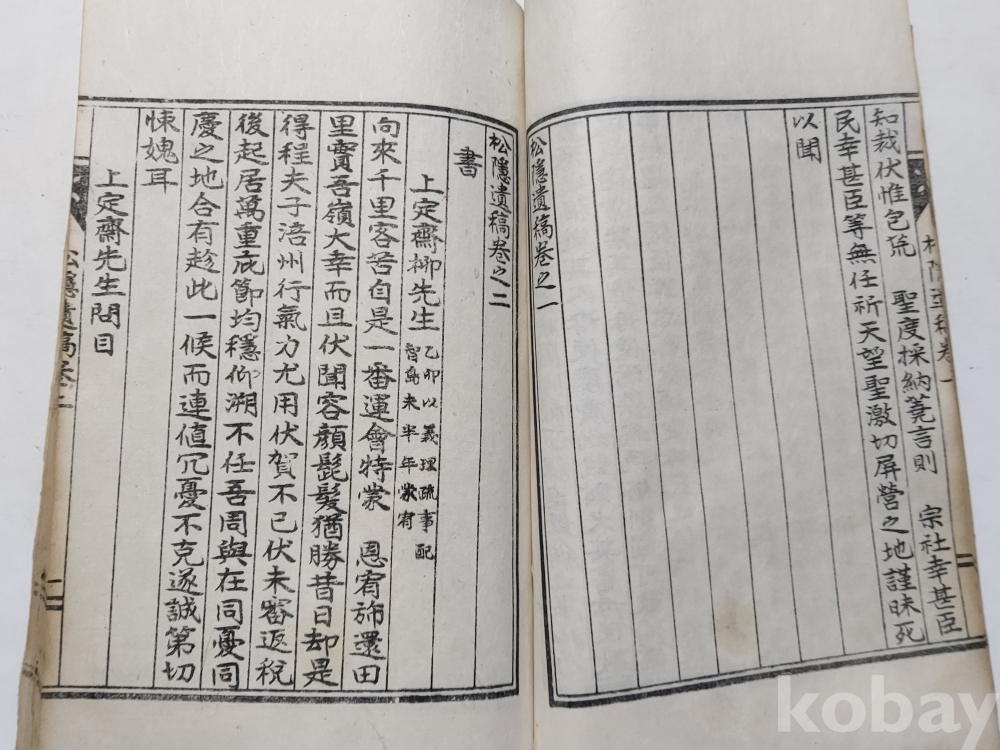 知裁伏惟包荒　聖度採納蕘言則　宗社幸甚臣
民幸甚臣等無任祈天望聖激切屏營之地謹昧死
以聞
松隱遺稿卷之一
松隱遺稿卷之二
書
上定齋柳先生 乙卯以義理疏事配
智島未半年蒙宥
向來千里客苦自是一番運會特蒙　恩宥旆還田
里實吾嶺大幸而且伏聞容顏髭髮猶勝昔日却是
得程夫子涪州行氣力尤用伏賀不已伏未審返稅
後起居萬重庇節均穩仰溯不任吾周與在同憂同
慶之地合有趁此一候而連值冗憂不克遂誠第切
悚媿耳
上定齋先生問目
松隱遺稿卷二
二
kobay